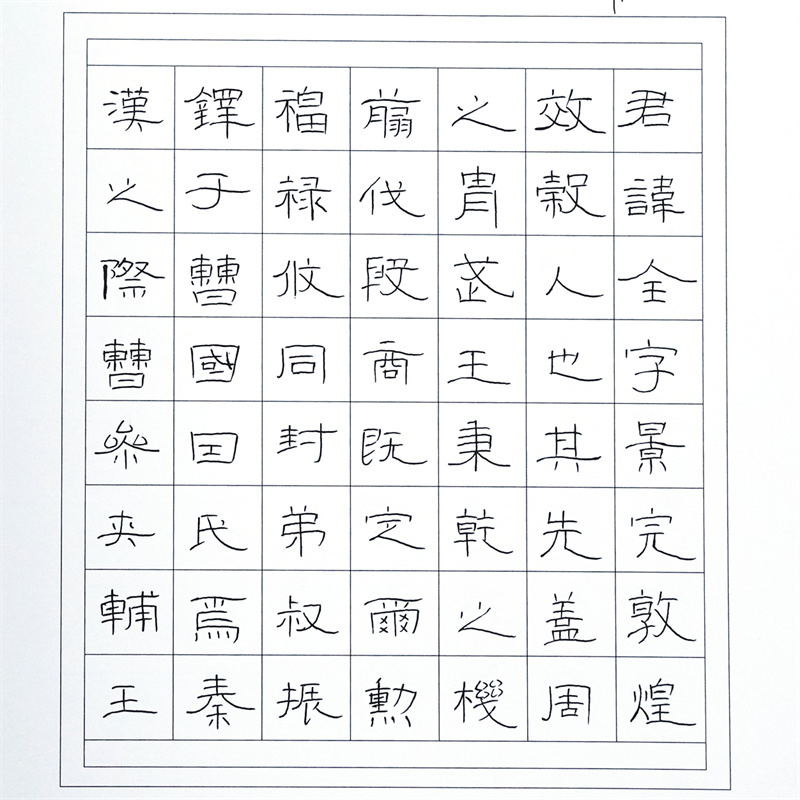 君諱全字景完敦煌
效穀人也其先蓋周
之胄武王秉乾之機
翦伐殷商既定爾勳
福禄攸同封弟叔振
鐸于曹國因氏焉秦
漢之際曹參夾輔王